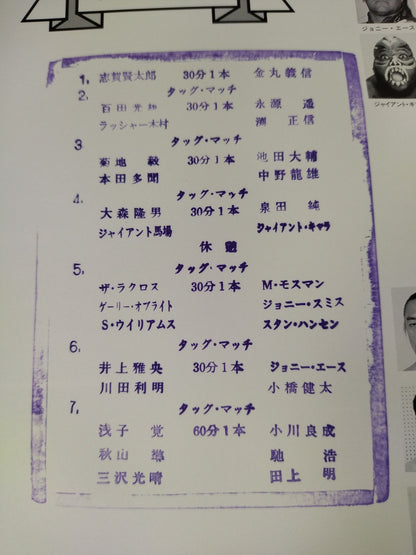 1. 志賀賢太郎 30分1本 金丸義信
2. タッグ・マッチ
百田光雄 30分1本 永源 遙
ラッシャー木村 渕 正信
3 タッグ・マッチ
菊地 毅 30分1本 池田大輔
本田多聞 中野龍雄
4. タッグ・マッチ
大森隆男 30分1本 泉田 純
ジャイアント馬場 ジャイアント・キマラ
休憩
5. タッグ・マッチ
ザ・ラクロス 30分1本 M・モスマン
ゲーリー・オブライト ジョニー・スミス
S・ウイリアムス スタン・ハンセン
6. タッグ・マッチ
井上雅央 30分1本 ジョニー・エース
川田利明 小橋健太
7. タッグ・マッチ
浅子 覚 60分1本 小川良成
秋山 準 馳 浩
三沢光晴 田上 明
ジョニー・エース